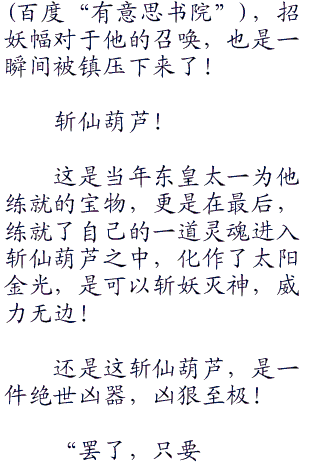 (百度“有意思书院”)，招
妖幡对于他的召唤，也是一
瞬间被镇压下来了！
斩仙葫芦！
这是当年东皇太一为他
练就的宝物，更是在最后，
练就了自己的一道灵魂进入
斩仙葫芦之中，化作了太阳
金光，是可以斩妖灭神，威
力无边！
还是这斩仙葫芦，是一
件绝世凶器，凶狠至极！
“罢了，只要